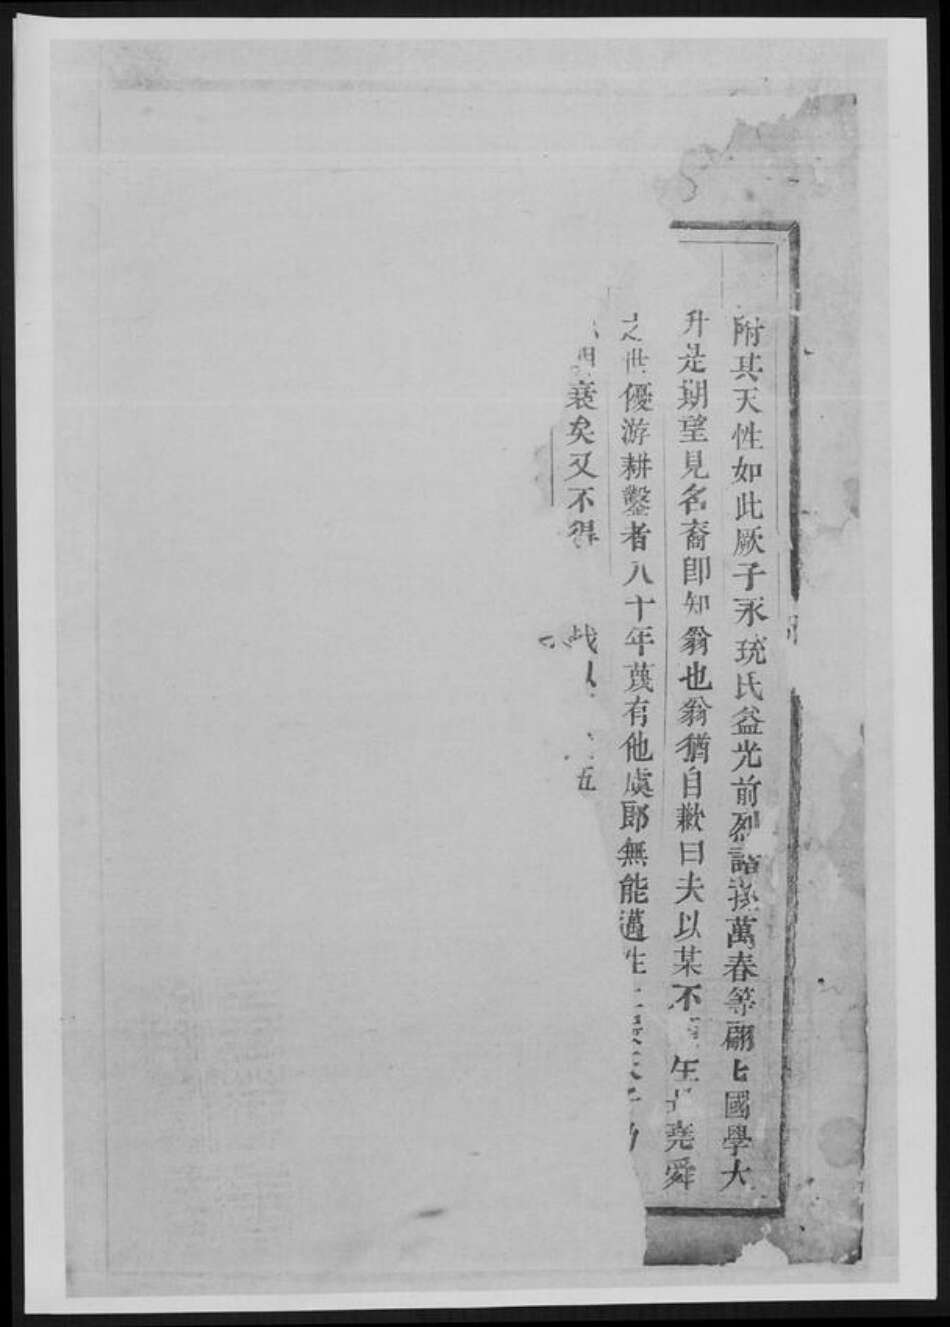 附其天性如此厥子永珫氏益光前列諸孫萬春等翩七國學大
升是期望見名裔卽知翁也翁猶自歉曰夫以某不生堯舜
之世優游耕鑿者八十年蔑有他虞郎無能邁生
衰矣又不得 以 五